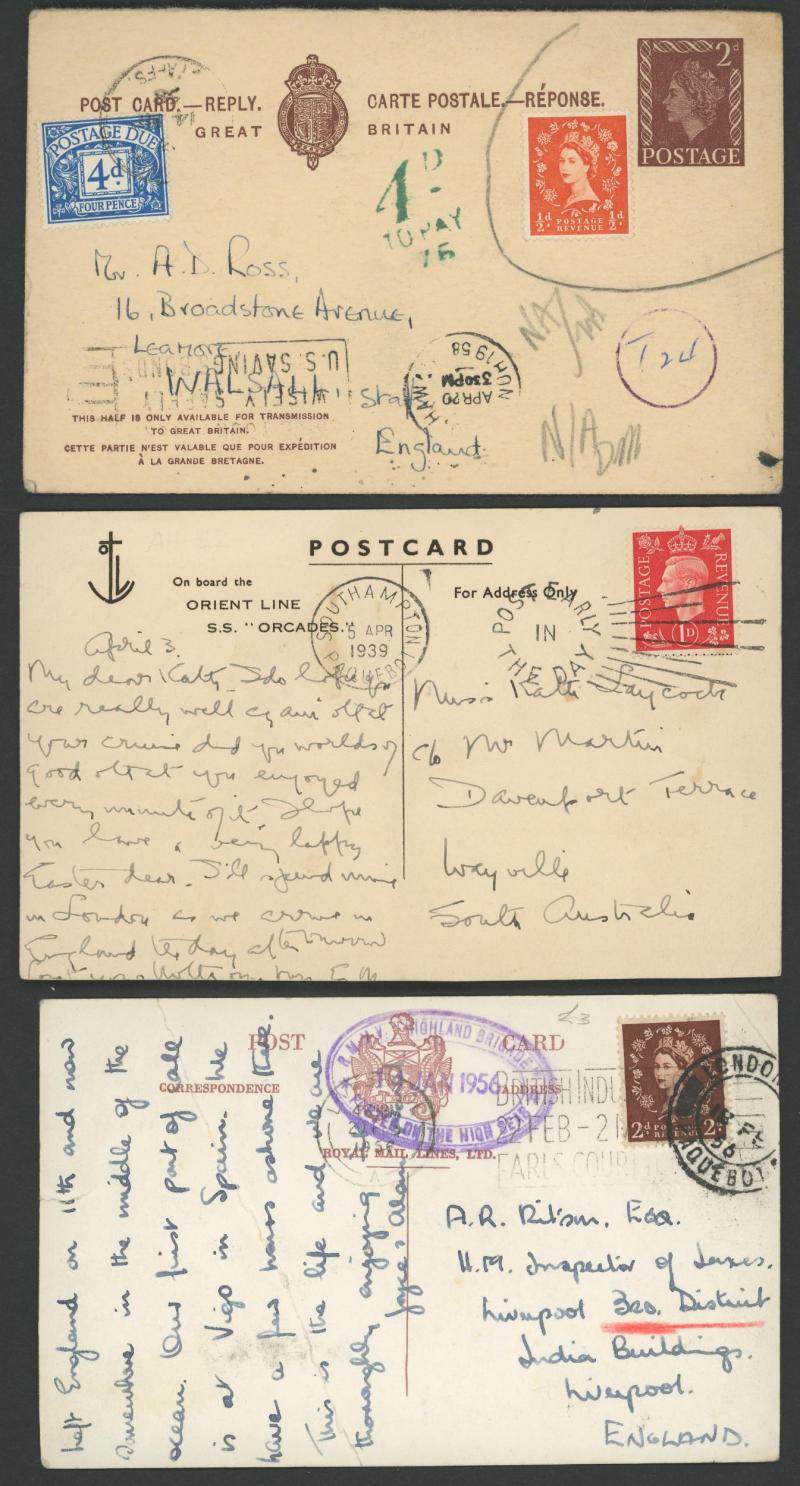 POST CARD.—REPLY.
GREAT
CARTE POSTALE.—RÉPONSE.
BRITAIN
2d
POSTAGE
POSTAGE DUE
4d.
FOUR PENCE
4D
TO PAY
½d. POSTAGE REVENUE ½d.
Mr. A.D. Ross,
16, Broadstone Avenue,
Leamore
WALSALL,
Staffs
England
U.S. SAVINGS
WISELY SAFELY
APR 20
3 30 PM
1958
N.H.
N/A
T 24
N/A
THIS HALF IS ONLY AVAILABLE FOR TRANSMISSION
TO GREAT BRITAIN.
CETTE PARTIE N'EST VALABLE QUE POUR EXPÉDITION
À LA GRANDE BRETAGNE.
POSTCARD
On board the
ORIENT LINE
S.S. "ORCADES."
For Address Only
SOUTHAMPTON
5 APR
1939
PAQUEBOT
POST EARLY
IN
THE DAY
POSTAGE REVENUE
1D
April 3.
My dear Kath, I do hope you
are really well again & that
your cruise did you worlds of
good & that you enjoyed
every minute of it. I hope
you have a very happy
Easter dear. I'll spend mine
in London as we arrive in
England the day after tomorrow
Miss Kath Laycock
c/o Mr Martin
Davenport Terrace
Wayville
South Australia
POST CARD
CORRESPONDENCE
ADDRESS
ROYAL MAIL LINES, LTD.
£3
R.M.M.V. HIGHLAND BRIGADE
12 JAN 1956
POSTED ON THE HIGH SEAS
BRITISH INDU
22 FEB - 2
EARLS COURT
2d. POSTAGE REVENUE 2d.
LONDON
FE
56
PAQUEBOT
1956
Left England on 11th and now
somewhere in the middle of the
ocean. Our first port of call
is at Vigo in Spain. We
have a few hours ashore there.
This is the life and we are
thoroughly enjoying
Joyce & Alan
A.R. Ritson, Esq.
H.M. Inspector of Taxes.
Liverpool 3rd. District
India Buildings.
Liverpool.
ENGLAND.